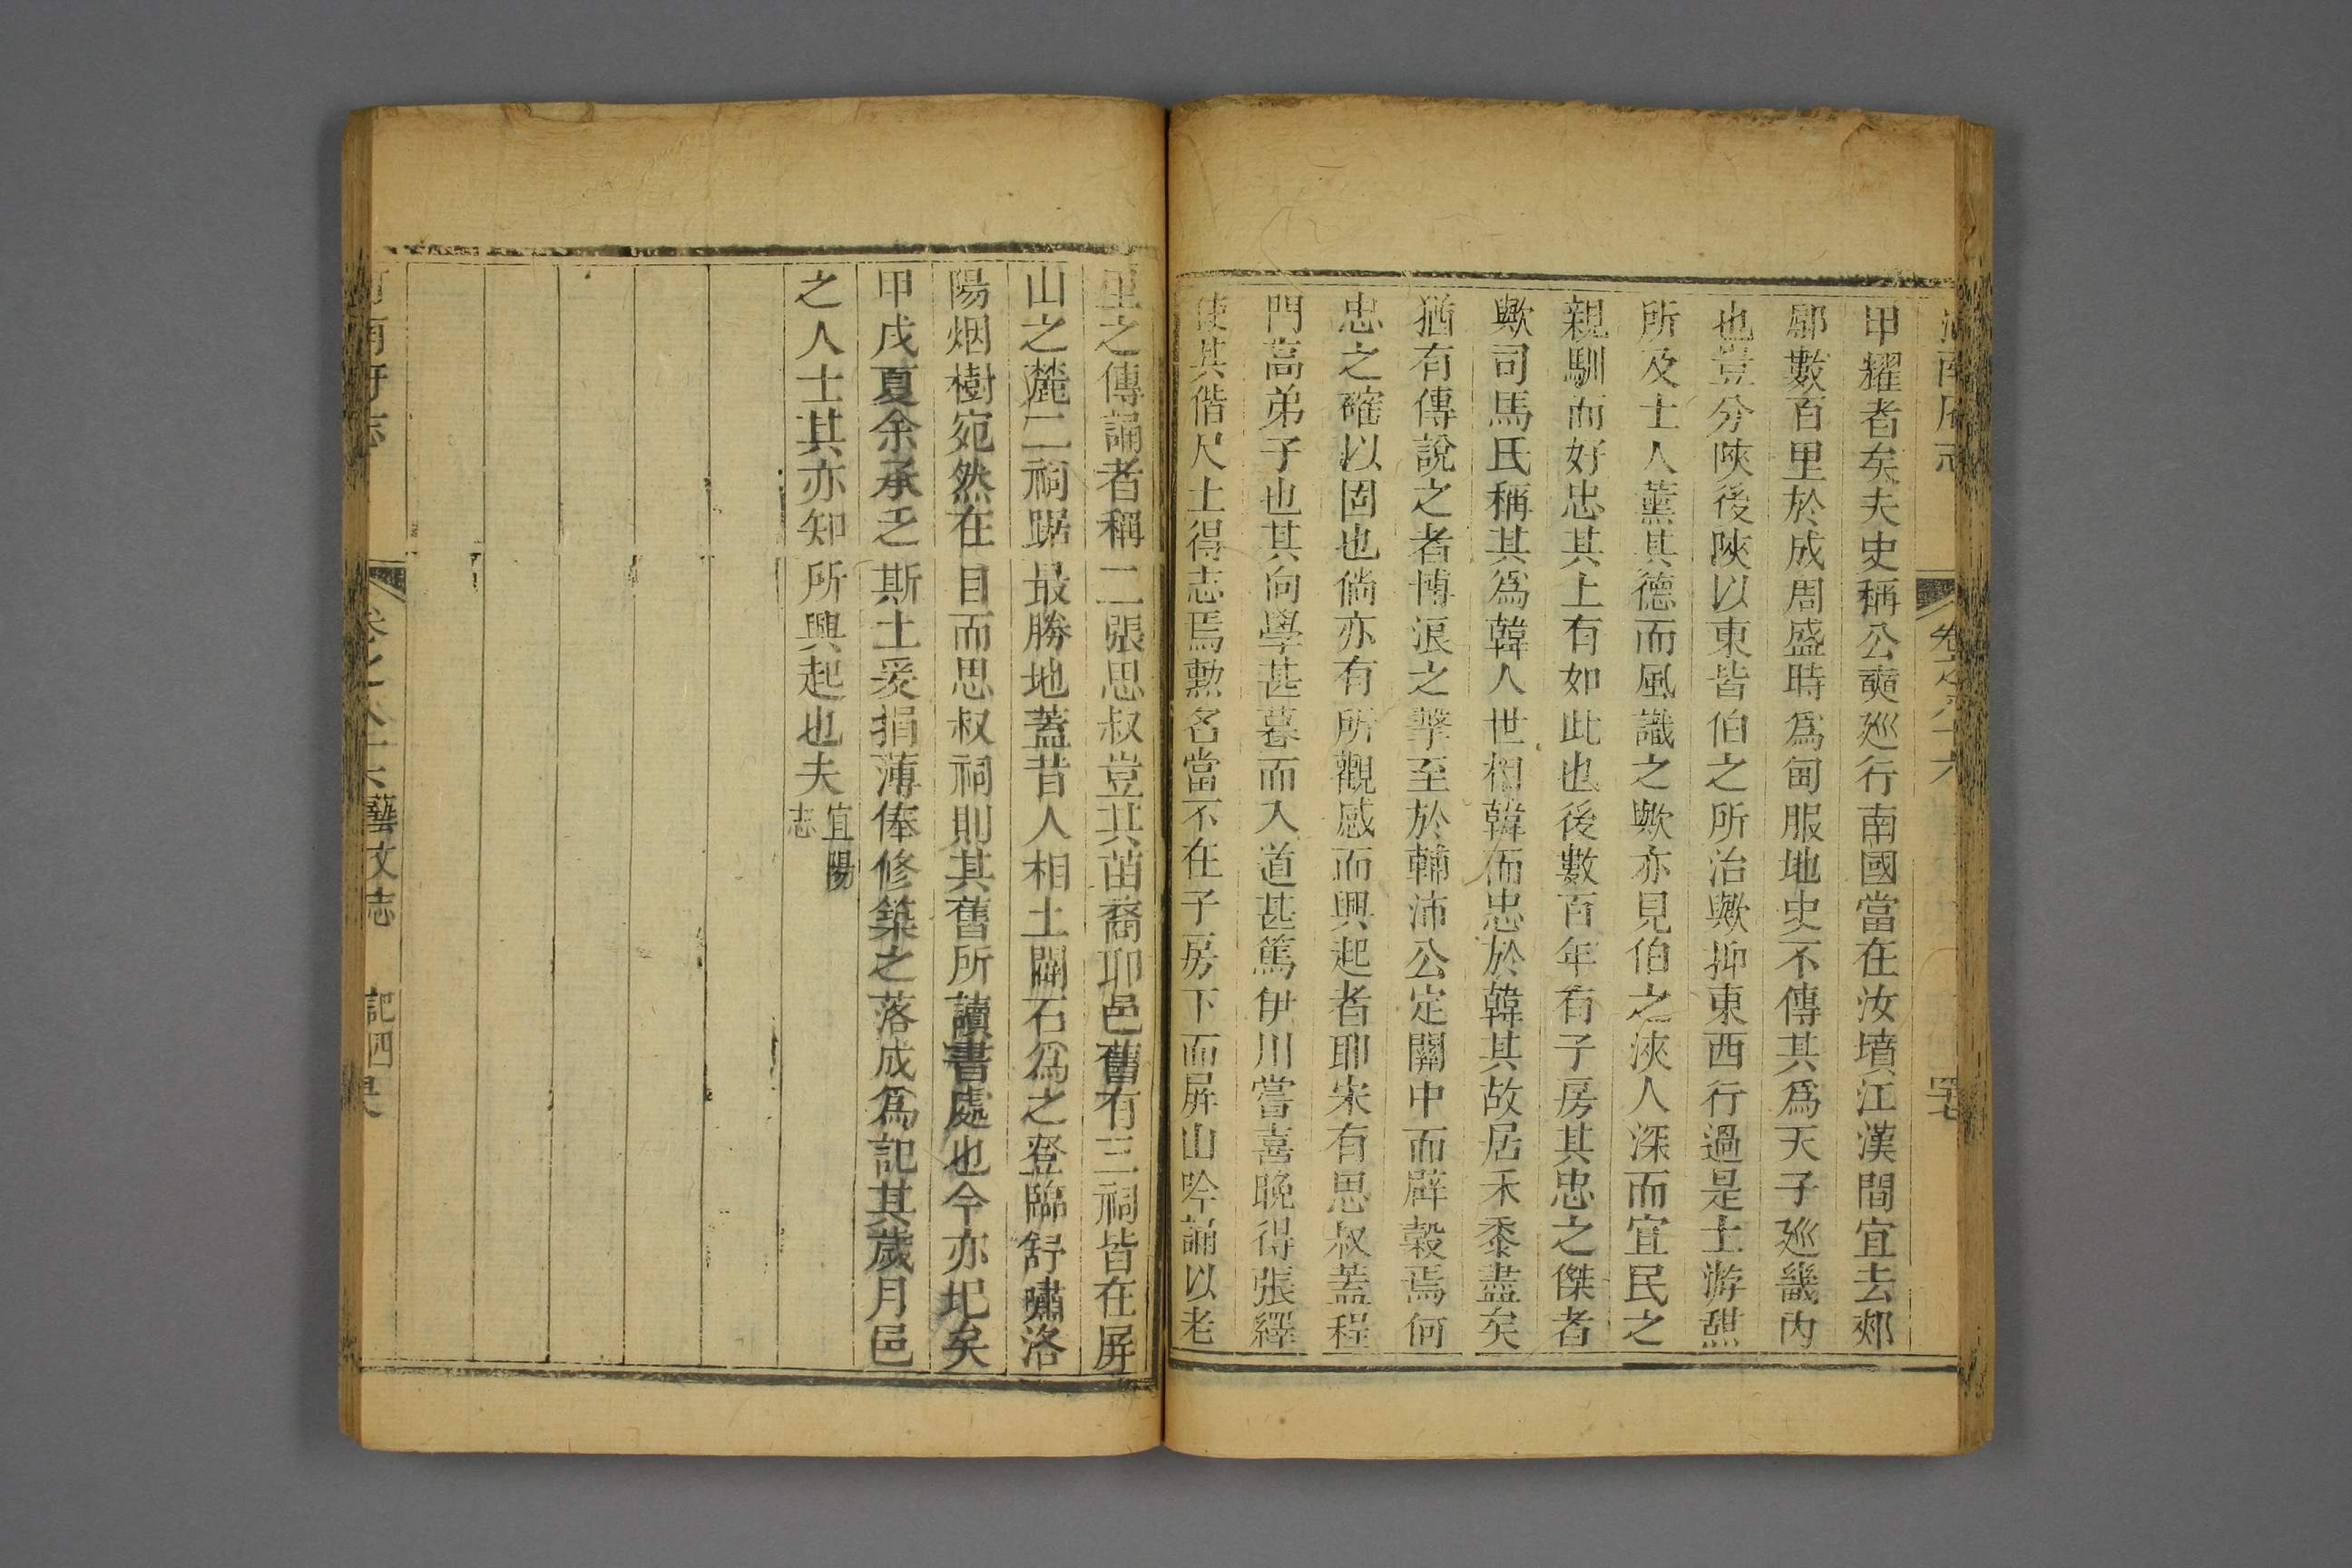 河南府志 卷之八十六
甲耀者矣夫史稱公奭廵行南國當在汝墳江漢間宜去郟
鄏數百里於成周盛時爲甸服地史不傳其爲天子廵畿內
也豈分陝後陝以東皆伯之所治歟抑東西行過是土游憇
所及士人薰其德而風識之歟亦見伯之浹人深而宜民之
親馴而好忠其上有如此也後數百年有子房其忠之傑者
歟司馬氏稱其爲韓人世相韓而忠於韓其故居禾黍盡矣
猶有傳說之者博浪之擊至於輔沛公定關中而辟榖焉何
忠之確以固也倘亦有所觀感而興起者耶宋有思叔蓋程
門高弟子也其向學甚暮而入道甚篤伊川嘗喜晚得張繹
使其偕尺土得志焉勲名當不在子房下而屏山吟誦以老
里之傳誦者稱二張思叔豈其苗裔耶邑舊有三祠皆在屏
山之麓二祠踞最勝地蓋昔人相土闢石爲之登臨舒嘯洛
陽烟樹宛然在目而思叔祠則其舊所讀書處也今亦圯矣
甲戌夏余承乏斯土爰捐薄俸修築之落成爲記其歲月邑
之人士其亦知所興起也夫 宜陽志
河南府志 卷之八十六 藝文志 記四